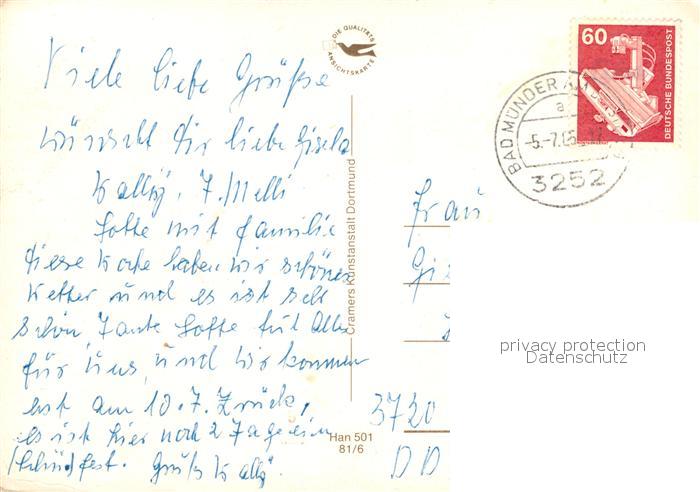 Viele liebe Grüße
wünscht Dir liebe Gisela
Wally, T. Melli
Lotte mit Familie
diese Woche haben wir schönes
Wetter und es ist sehr
schön, Tante Lotte tut alles
für uns, und wir kommen
erst am 10.7. Zrück,
es ist hier noch 2 Tage ein
fest. Gruß Wally.
DIE QUALITÄTS
ANSICHTSKARTE
Cramers Kunstanstalt Dortmund
Han 501
81/6
60
DEUTSCHE BUNDESPOST
BAD MÜNDER AM
a
-5.-7.85
3252
Frau
Gi
3720
DD
privacy protection
Datenschutz